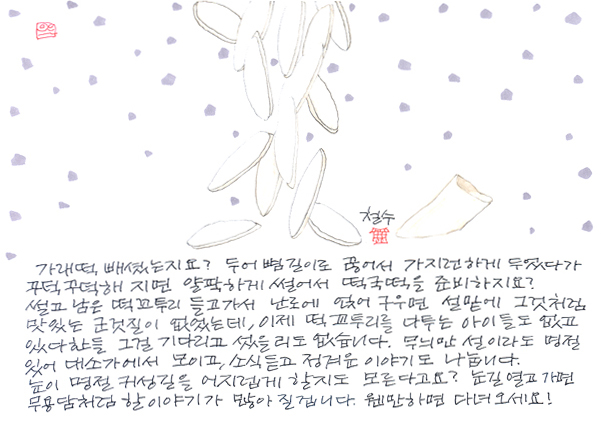 철수
가래떡 빼셨는지요? 두어 뼘길이로 끊어서 가지런하게 두었다가
꾸덕꾸덕해 지면 얄팍하게 썰어서 떡국떡을 준비하지요?
썰고 남은 떡꼬투리 들고가서 난로에 얹어 구우면 설밑에 그것처럼
맛있는 군것질이 없었는데, 이제 떡 꼬투리를 다투는 아이들도 없고
있다한들 그걸 기다리고 섰을리도 없습니다. 무늬만 설이라도 명절
있어 대소가에서 모이고, 소식듣고 정겨운 이야기도 나눕니다.
눈이 명절 귀성길을 어지럽게 할지도 모른다고요? 눈길 열고 가면
무용담처럼 할 이야기가 많아 질겝니다. 웬만하면 다녀 오세요!